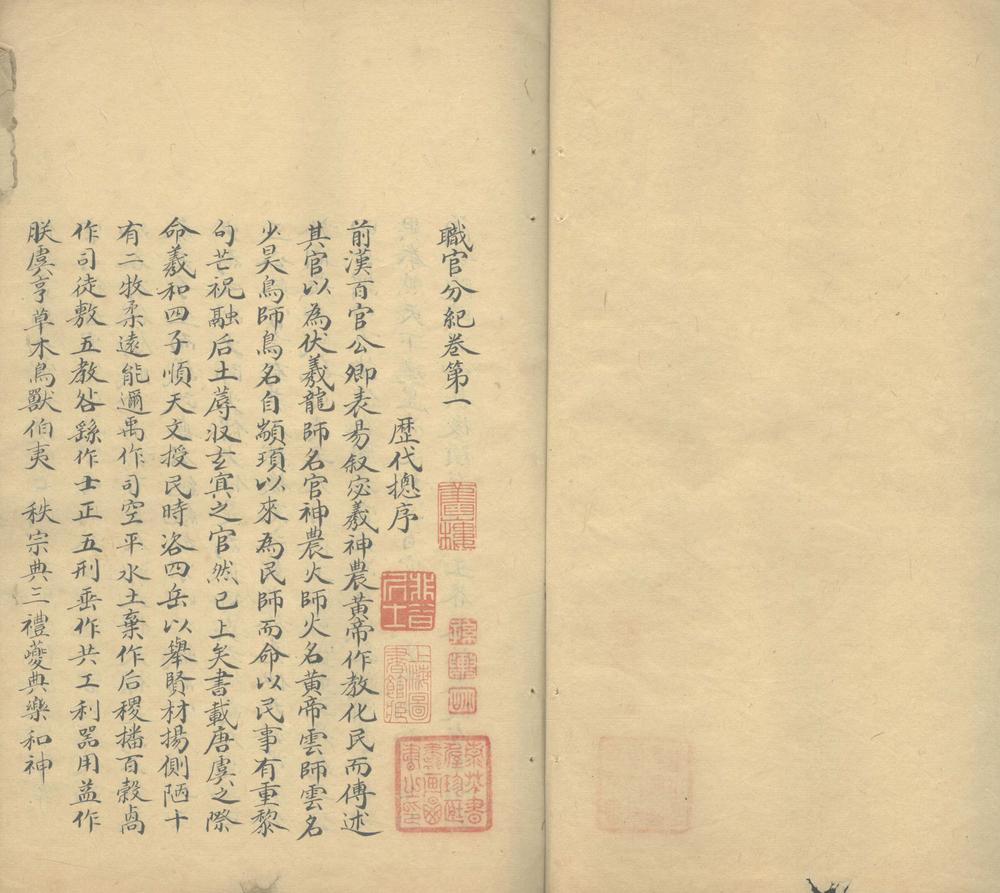 職官分紀卷第一
歷代摠序
前漢百官公卿表昜叙宓羲神農黃帝作敎化民而傳述
其官以為伏羲龍師名官神農火師火名黃帝雲師雲名
少昊鳥師鳥名自顓頊以來為民師而命以民事有重黎
句芒祝融后土蓐收玄冥之官然已上矣書載唐虞之際
命羲和四子順天文授民時咨四岳以舉賢材揚側陋十
有二牧柔遠能邇禹作司空平水土棄作后稷播百穀卨
作司徒敷五教咎繇作士正五刑垂作共工利器用益作
朕虞亨草木鳥獸伯夷 秩宗典三禮夔典樂和神
上海圖書館藏